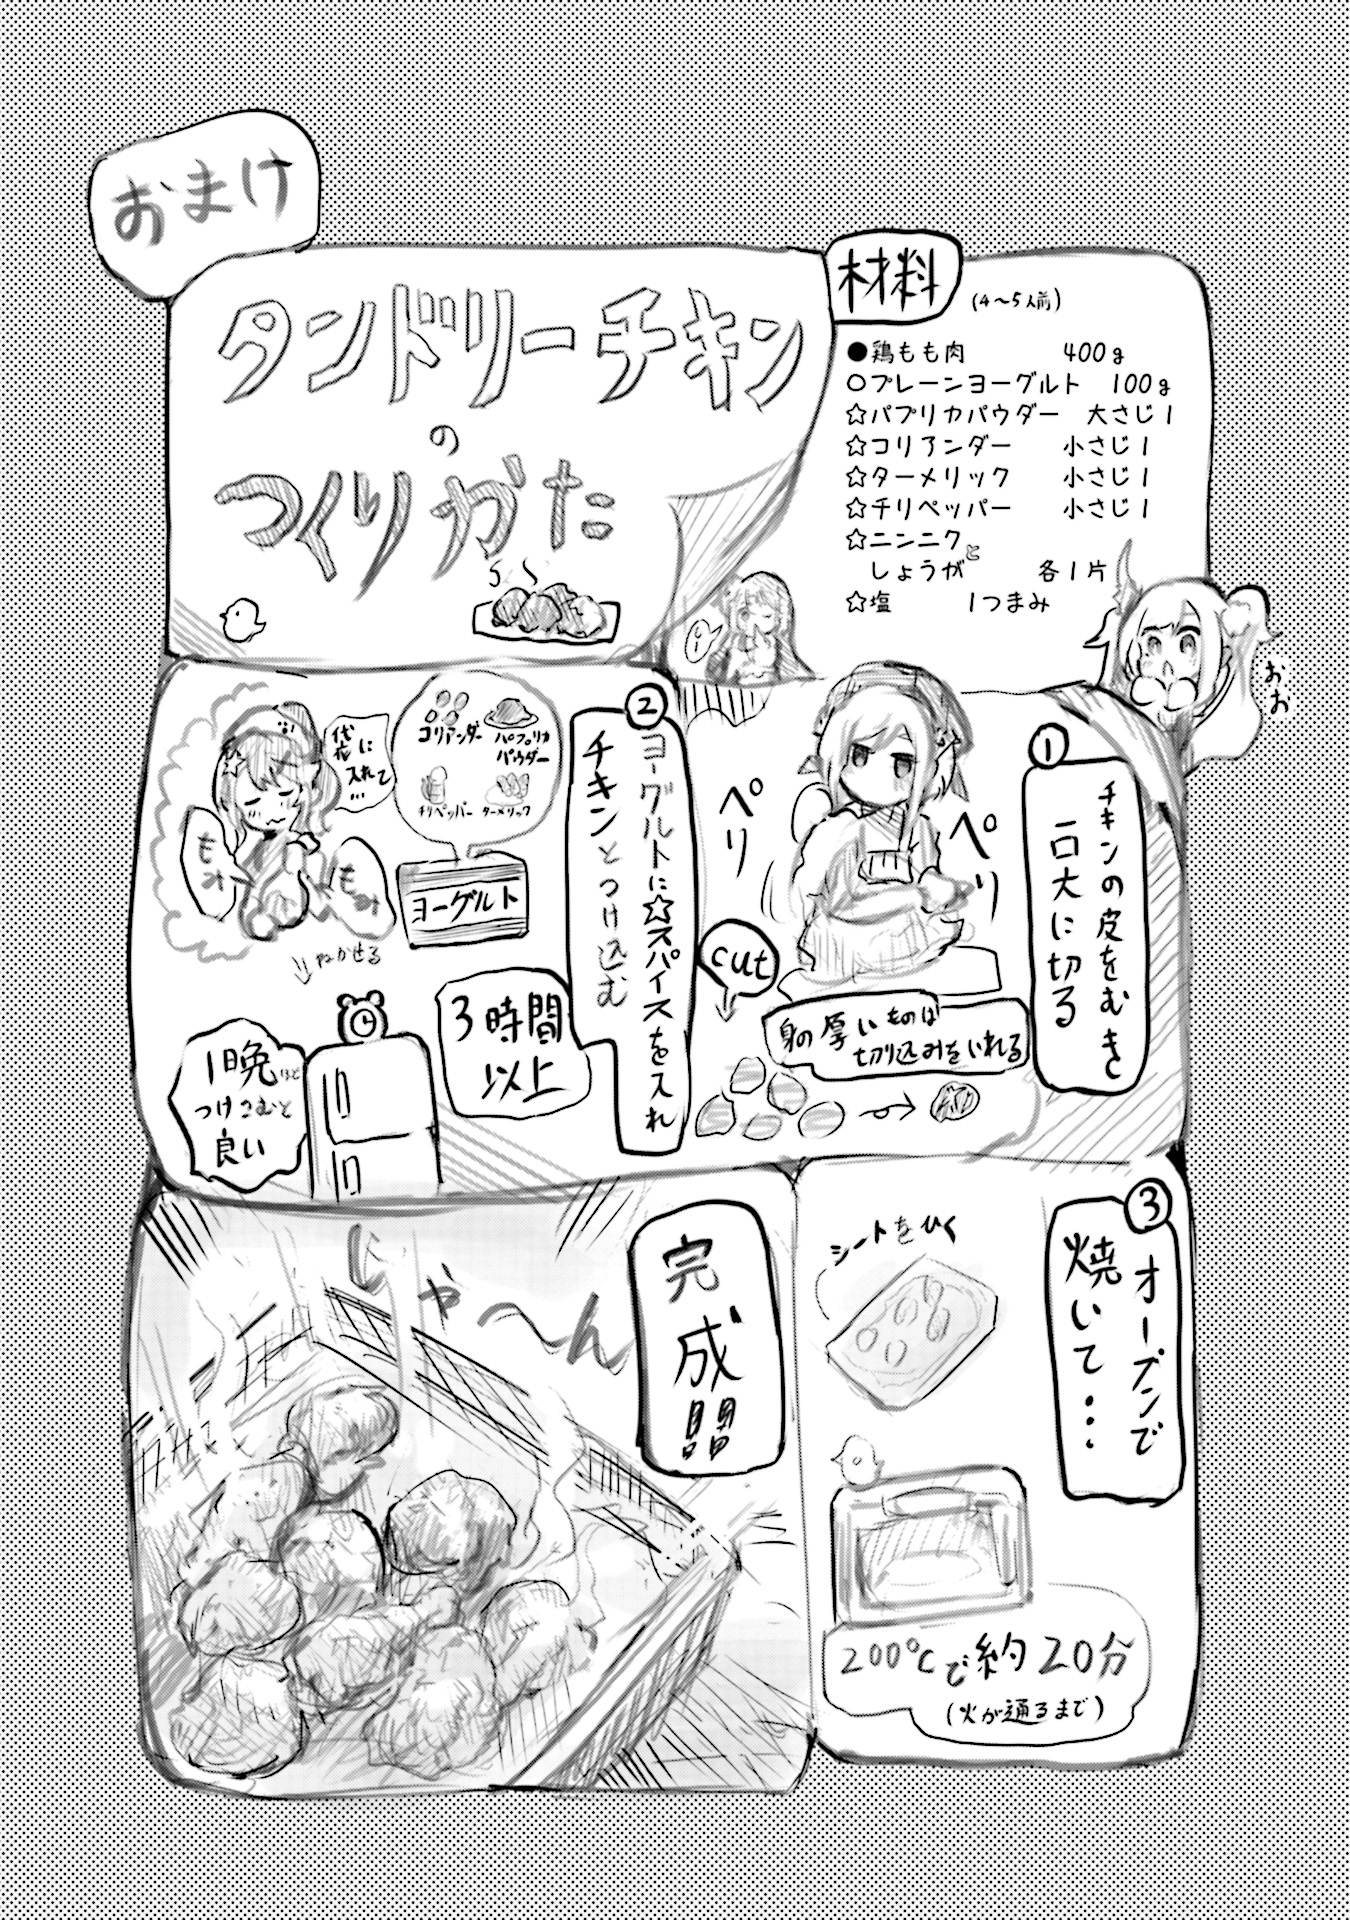 おまけ
タンドリーチキン
の
つくりかた
材料
(4～5人前)
●鶏もも肉 400g
○プレーンヨーグルト 100g
☆パプリカパウダー 大さじ1
☆コリアンダー 小さじ1
☆ターメリック 小さじ1
☆チリペッパー 小さじ1
☆ニンニクと
しょうが 各1片
☆塩 1つまみ
おお
①
チキンの皮をむき
一口大に切る
ペリ
ペリ
cut
身の厚いものは
切り込みをいれる
②
ヨーグルトに☆スパイスを入れ
チキンとつけ込む
コリアンダー
パプリカ
パウダー
チリペッパー
ターメリック
ヨーグルト
袋に
入れて
…
もみ
もみ
ねかせる
3時間
以上
1晩ほど
つけこむと
良い
③
オーブンで
焼いて・・・
シートをひく
200℃で約20分
(火が通るまで)
完成
じゃ〜ん